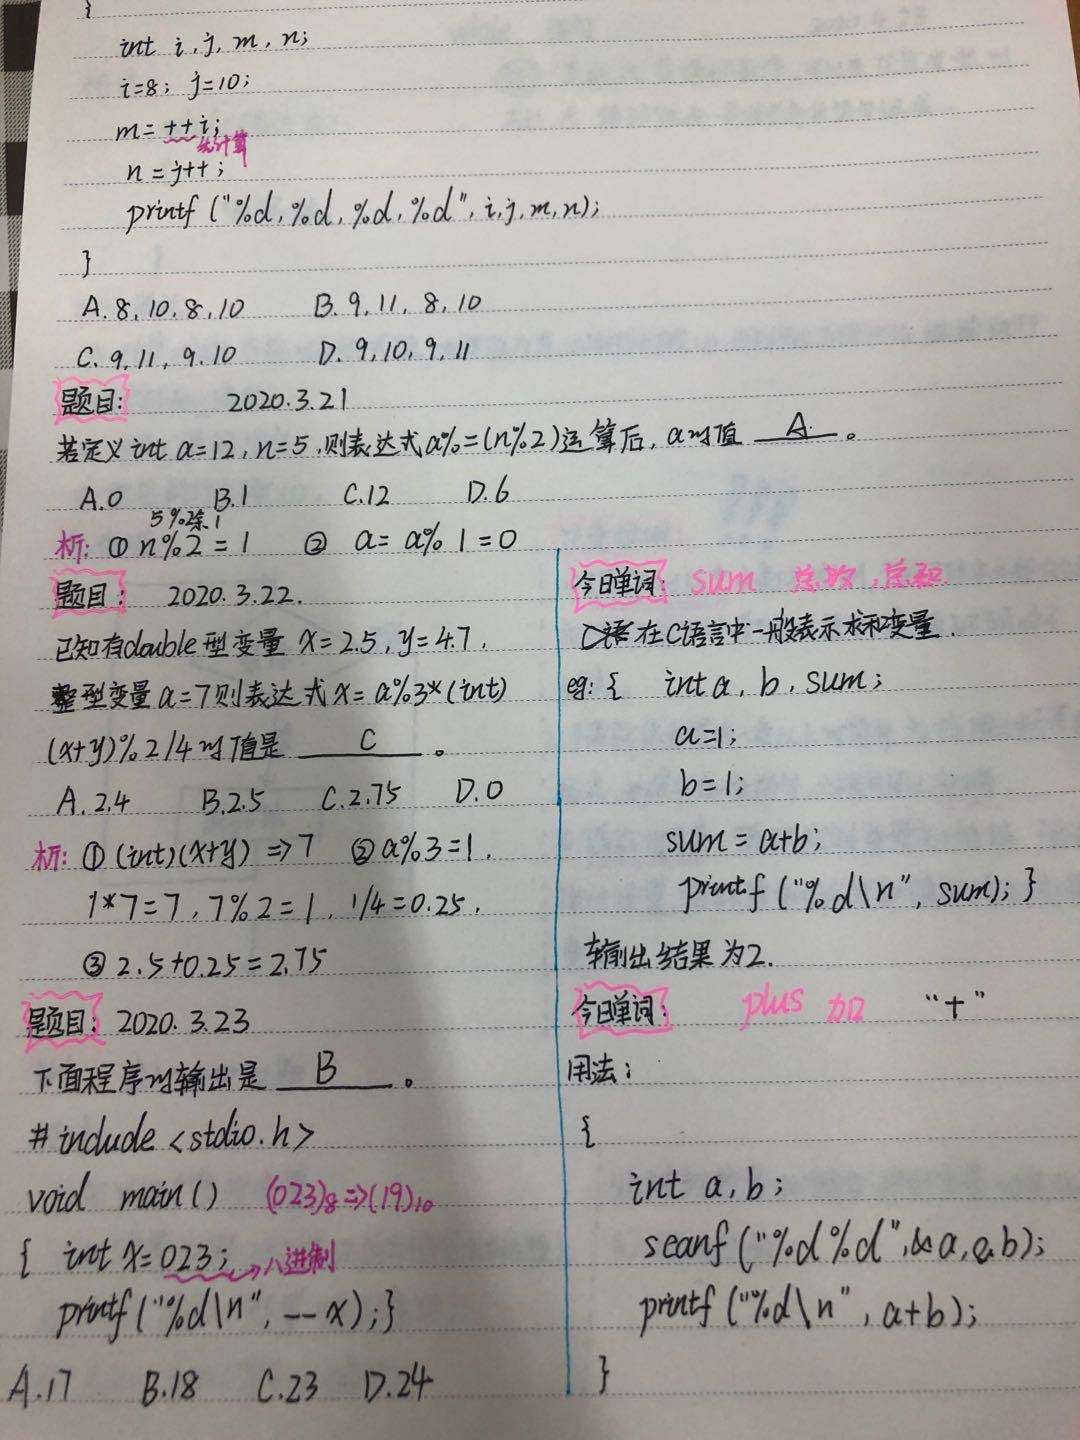 {
int i,j,m,n;
i=8; j=10;
m=++i;
先计算
n=j++;
printf("%d,%d,%d,%d",i,j,m,n);
}
A.8,10,8,10 B.9,11,8,10
C.9,11,9.10 D.9,10,9,11
题目: 2020.3.21
若定义int a=12,n=5,则表达式a%=(n%2)运算后,a的值 A 。
A.0 B.1 C.12 D.6
5%2余1
析: ① n%2=1 ② a=a%1=0
题目: 2020.3.22.
已知有double型变量 x=2.5,y=4.7,
整型变量a=7则表达式x=a%3*(int)
(x+y)%2/4的值是 C 。
A.2.4 B.2.5 C.2.75 D.0
析: ①(int)(x+y)⇒7 ②a%3=1.
1*7=7,7%2=1,1/4=0.25.
③2.5+0.25=2.75
题目: 2020.3.23
下面程序的输出是 B 。
#include<stdio.h>
void main() (023)8⇒(19)10
{ int x=023; →八进制
printf("%d\n",--x);}
A.17 B.18 C.23 D.24
今日单词: sum 总数,总和
在C语言中一般表示求和变量.
eg:{ int a,b,sum;
a=1;
b=1;
sum=a+b;
printf("%d\n",sum);}
输出结果为2.
今日单词: plus 加 "+"
用法:
{
int a,b;
scanf("%d%d",&a,&b);
printf("%d\n",a+b);
}